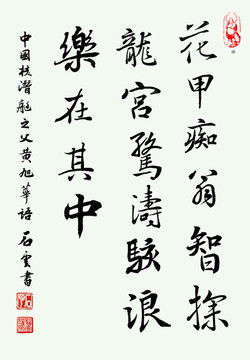 花甲痴翁智探
龍宮驚濤駭浪
樂在其中
中國核潛艇之父黄旭華語 石雲書